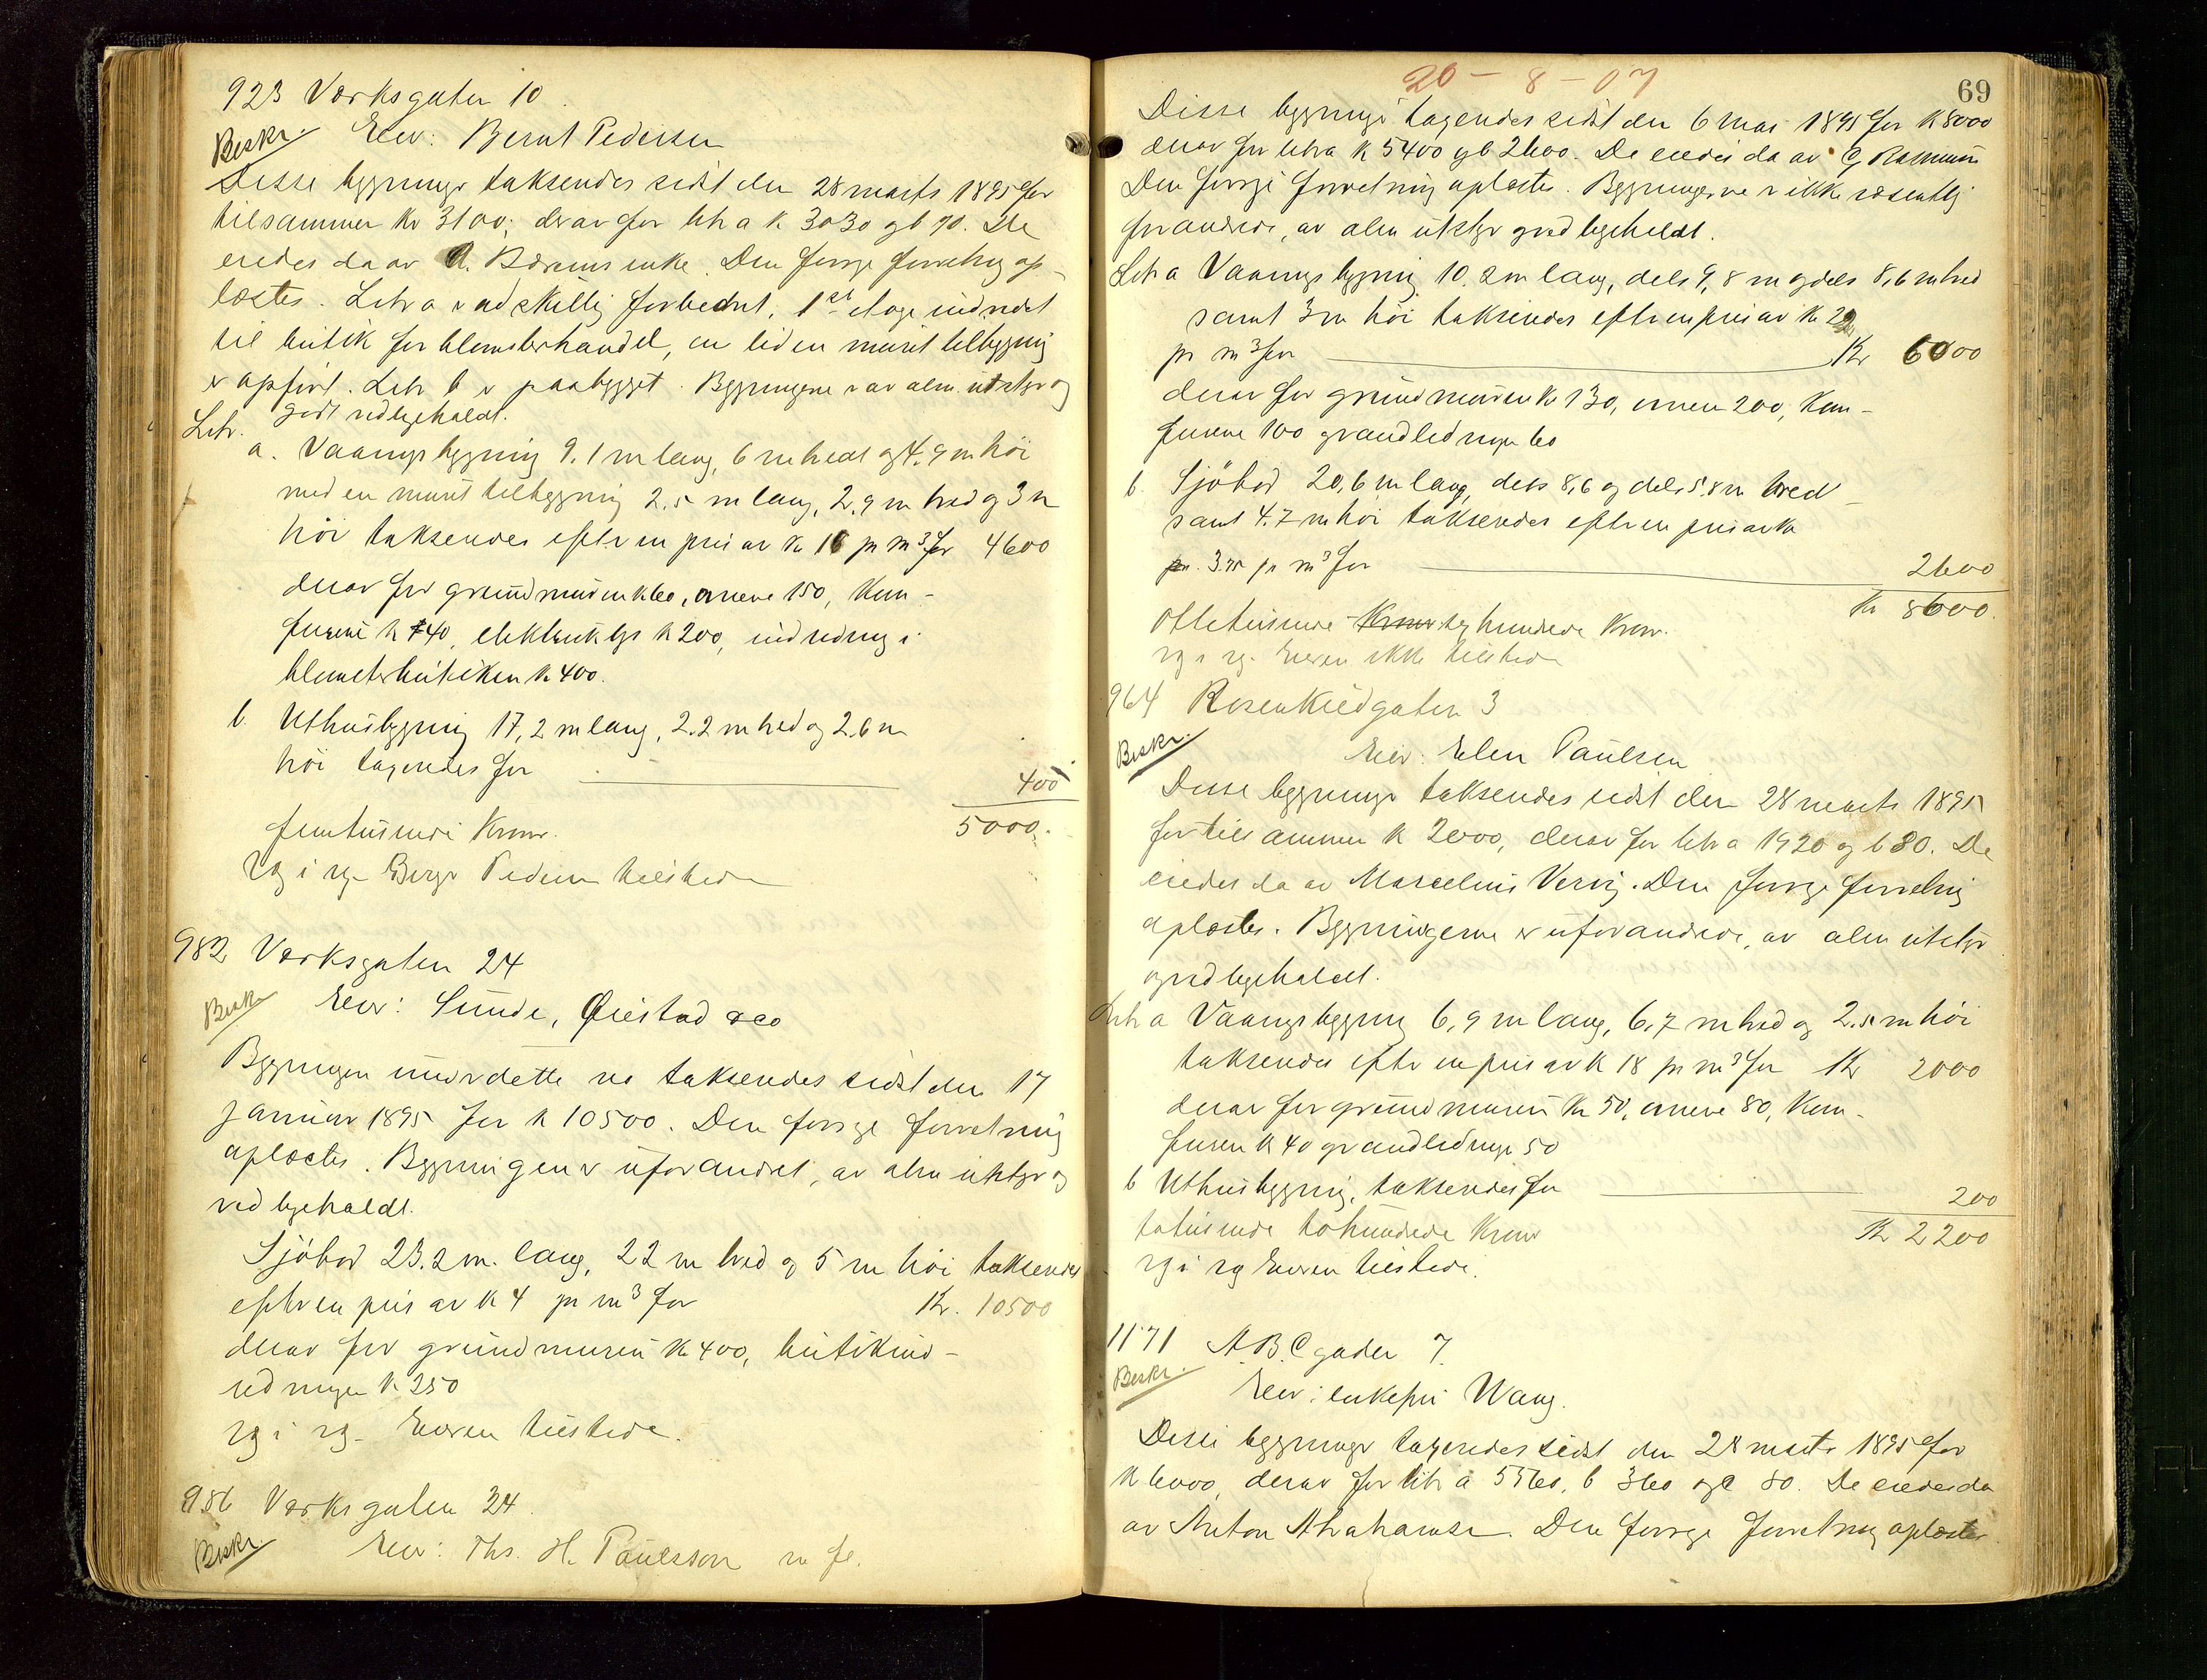 923 Værksgaten 10.
Beskr. Eier: Bernt Pedersen
Disse bygninger taksendes sidst den 28 marts 1895 for
tilsammen kr 3100, derav for litr a k 3030 og b 70. De
eiedes da av A. enke. Den forrige forretning op-
læstes. Litr a er adskillig forbedret, 1st etage indredet
til butik for blomsterhandel, en liden muret tilbygning
er opført. Litr b er paabygget. Bygningerne er av alm utstyr og
godt vedligeholdt.
Litr.
a. Vaaningsbygning 9.1 m lang, 6 m bred og 4.9 m høi
med en muret tilbygning 2.5 m lang, 2.9 m bred og 3 m
høi taksendes efter en pris av kr 16 pr m³ for 4600
derav for grundmuren k 60, ovnene 150, kom-
furene k 40, elektrisk lys k 200, indredning i
blomsterbutikken k 400.
b. Uthusbygning 17,2 m lang, 2.2 m bred og 2.6 m
høi taxeredes for 400
femtusinde Kroner. 5000.
rg i rg. Pedersen tilstede
982 Værksgaten 24
Beskr Eier: Sunde, Øiestad & co
Bygningen under dette no taksendes sidst den 17
januar 1895 for k 10500. Den forrige forretning
oplæstes. Bygningen er uforandret, av alm utstyr og
vedligeholdt.
Sjöbod 23.2 m. lang, 22 m bred og 5 m høi taksendes
efter en pris av k 4 pr m³ for Kr. 10500
derav for grundmuren kr 400, butikind-
redningen k 250
rg i rg. Eieren tilstede.
986 Værksgaten 34.
Beskr Eier: Ths. H. Paulsson m fl.
20 - 8 - 07
69
Disse bygninger taxeredes sidst den 6 mai 1895 for k 8000
derav for litr a k 5400 og b 2600. De eiedes da av O Rasmussen
Den forrige forretning oplæstes. Bygningerne er ikke væsentlig
forandrede, av alm utstyr og vedligeholdt.
Litr a Vaaningsbygning 10.2 m lang, dels 9,8 m og dels 8,6 m bred
samt 3 m høi taksendes efter en pris av kr 22
pr m³ for Kr 6000
derav for grundmuren kr 130, ovnene 200, kom-
furene 100 og vandledningen 60
b. Sjöbod 20,6 m lang, dels 8,6 og dels 5,8 m bred
samt 4.7 m høi taksendes efter en pris av kr
pr. 3.75 pr m³ for 2600
Kr 8600.
Ottetusinde Kroner sexhundrede Kroner.
rg i rg. Eieren ikke tilstede
964 Rosenkildgaten 3
Beskr. Eier: Elen Paulsen
Disse bygninger taksendes sidst den 28 marts 1895
for tilsammen k 2000, derav for litr a 1920 og b 80. De
eiedes da av Marcelius Vervig. Den forrige forretning
oplæstes. Bygningerne er uforandrede, av alm utstyr
og vedligeholdt.
Litr a Vaaningsbygning 6,9 m lang, 6,7 m bred og 2.5 m høi
taksendes efter en pris av k 18 pr m³ for Kr 2000
derav for grundmuren kr 50, ovnene 80, kom-
furen k 40 og vandledningen 50
b Uthusbygning, taksendes for 200
totusinde tohundrede Kroner Kr 2200
rg i rg Eieren tilstede.
1171 A.B.C gaden 7.
Beskr. Eier: enkefru Wang.
Disse bygninger taxeredes sidst den 28 marts 1895 for
k 6000, derav for litr a 5560, b 360 og c 80. De eiedes da
av Anton Abrahamsen. Den forrige forretning oplæstes